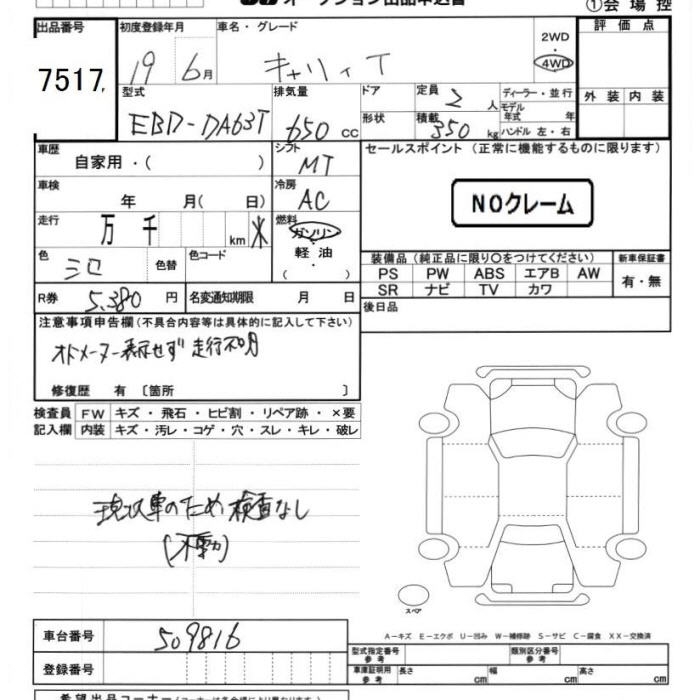 オークション出品申込書
①会場控
出品番号 初度登録年月 車名・グレード 評価点
7517 19 6月 キャリィ T 2WD 4WD
型式 排気量 ドア 定員 2人 ディーラー・並行 外装 内装
モデル年式 年
EBD-DA63T 650cc 形状 積載 350kg ハンドル 左・右
車歴 シフト セールスポイント (正常に機能するものに限ります)
自家用・( ) MT
車検 冷房
年 月(日) AC NOクレーム
走行 万 千 km ※ 燃料 ガソリン
軽油
( ・ )
色 シロ 色替 色コード 装備品 (純正品に限り〇をつけてください) 新車保証書
PS PW ABS エアB AW 有・無
SR ナビ TV カワ
R券 5,380円 名変通知期限 月 日 後日品
注意事項申告欄(不具合内容等は具体的に記入して下さい)
オドメーター表示せず 走行不明
修復歴 有 〔箇所 〕
検査員 FW キズ・飛石・ヒビ割・リペア跡・×要
記入欄 内装 キズ・汚レ・コゲ・穴・スレ・キレ・破レ
現状車のため検査なし
(不動)
スペア
A-キズ E-エクボ U-凹み W-補修跡 S-サビ C-腐食 XX-交換済
車台番号 509816
登録番号
型式指定番号 参考 類別区分番号 参考
車庫証明用 参考 長さ cm 幅 cm 高さ cm
希望出品コーナー(コーナーは各会場により異なります)